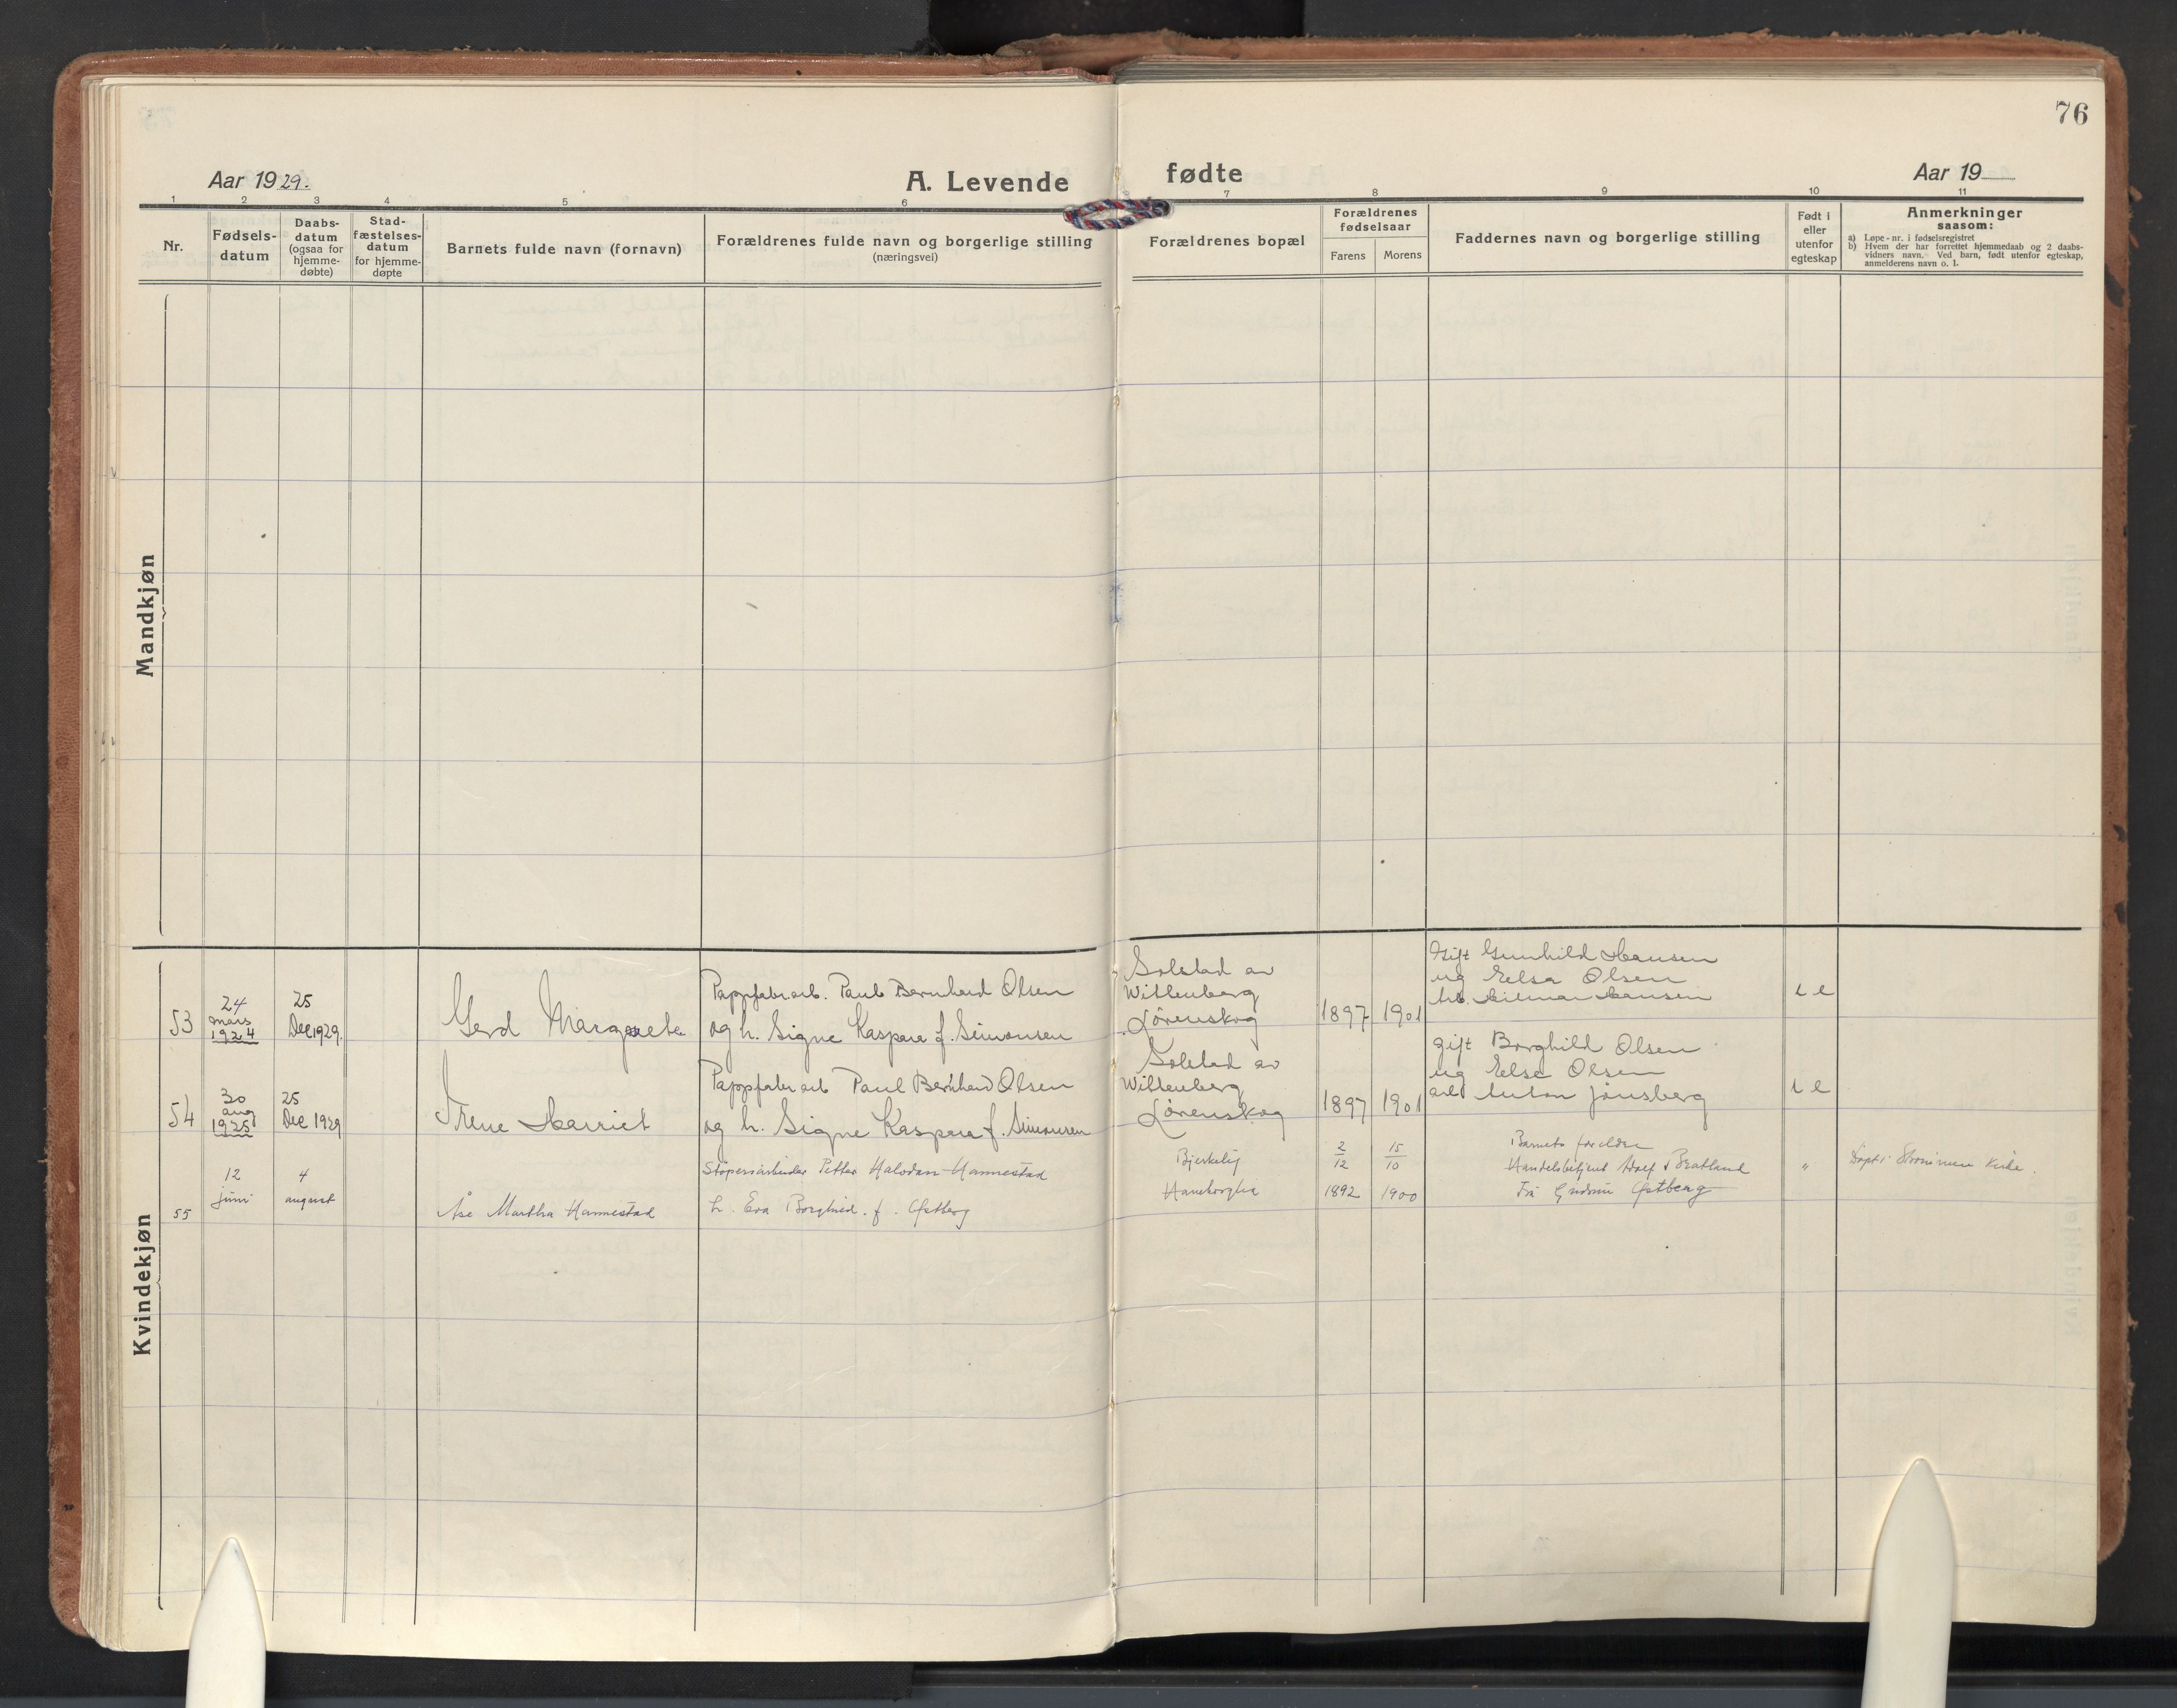 76
Aar 1929.
A. Levende fødte
Aar 19
1 2 3 4 5 6 7 8 9 10 11
Nr.
Fødsels-
datum
Daabs-
datum
(ogsaa for
hjemme-
døbte)
Stad-
fæstelses-
datum
for hjemme-
døpte
Barnets fulde navn (fornavn)
Forældrenes fulde navn og borgerlige stilling
(næringsvei)
Forældrenes bopæl
Forældrenes
fødselsaar
Farens
Morens
Faddernes navn og borgerlige stilling
Født i
eller
utenfor
egteskap
Anmerkninger
saasom:
a) Løpe-nr. i fødselsregistret
b) Hvem der har forrettet hjemmedaab og 2 daabs-
vidners navn. Ved barn, født utenfor egteskap,
anmelderens navn o. l.
Mandkjøn
Kvindekjøn
53
24
mars
1924
25
Dec 1929.
Gerd Margarete
Pappfabr arb. Paul Bernhard Olsen
og h. Signe Kaspara f. Simonsen
Solstad av
Wittenberg
Lørenskog
1897
1901
Gift Gunhild Hansen
ug Elsa Olsen
Hilmar Hansen
i e
54
30
aug
1925
25
Dec 1929
Irene Harriet
Pappfabr arb Paul Bernhard Olsen
og h. Signe Kaspara f. Simonsen
Solstad av
Wittenberg
Lørenskog
1897
1901
gift Borghild Olsen
ug Else Olsen
arb Anton Jønsberg
i e
55
12
juni
4
august
Åse Martha Hannestad
Støperiarbeider Petter Halvdan Hannestad
h. Eva Borghild f. Østberg
Bjerkelig
Hanaborglia
2
12
1892
15
10
1900
Barnets foreldre
Handelsbetjent Adolf Bratland
Frk Gudrun Østberg
"
Døpt i Strømmen Kirke.